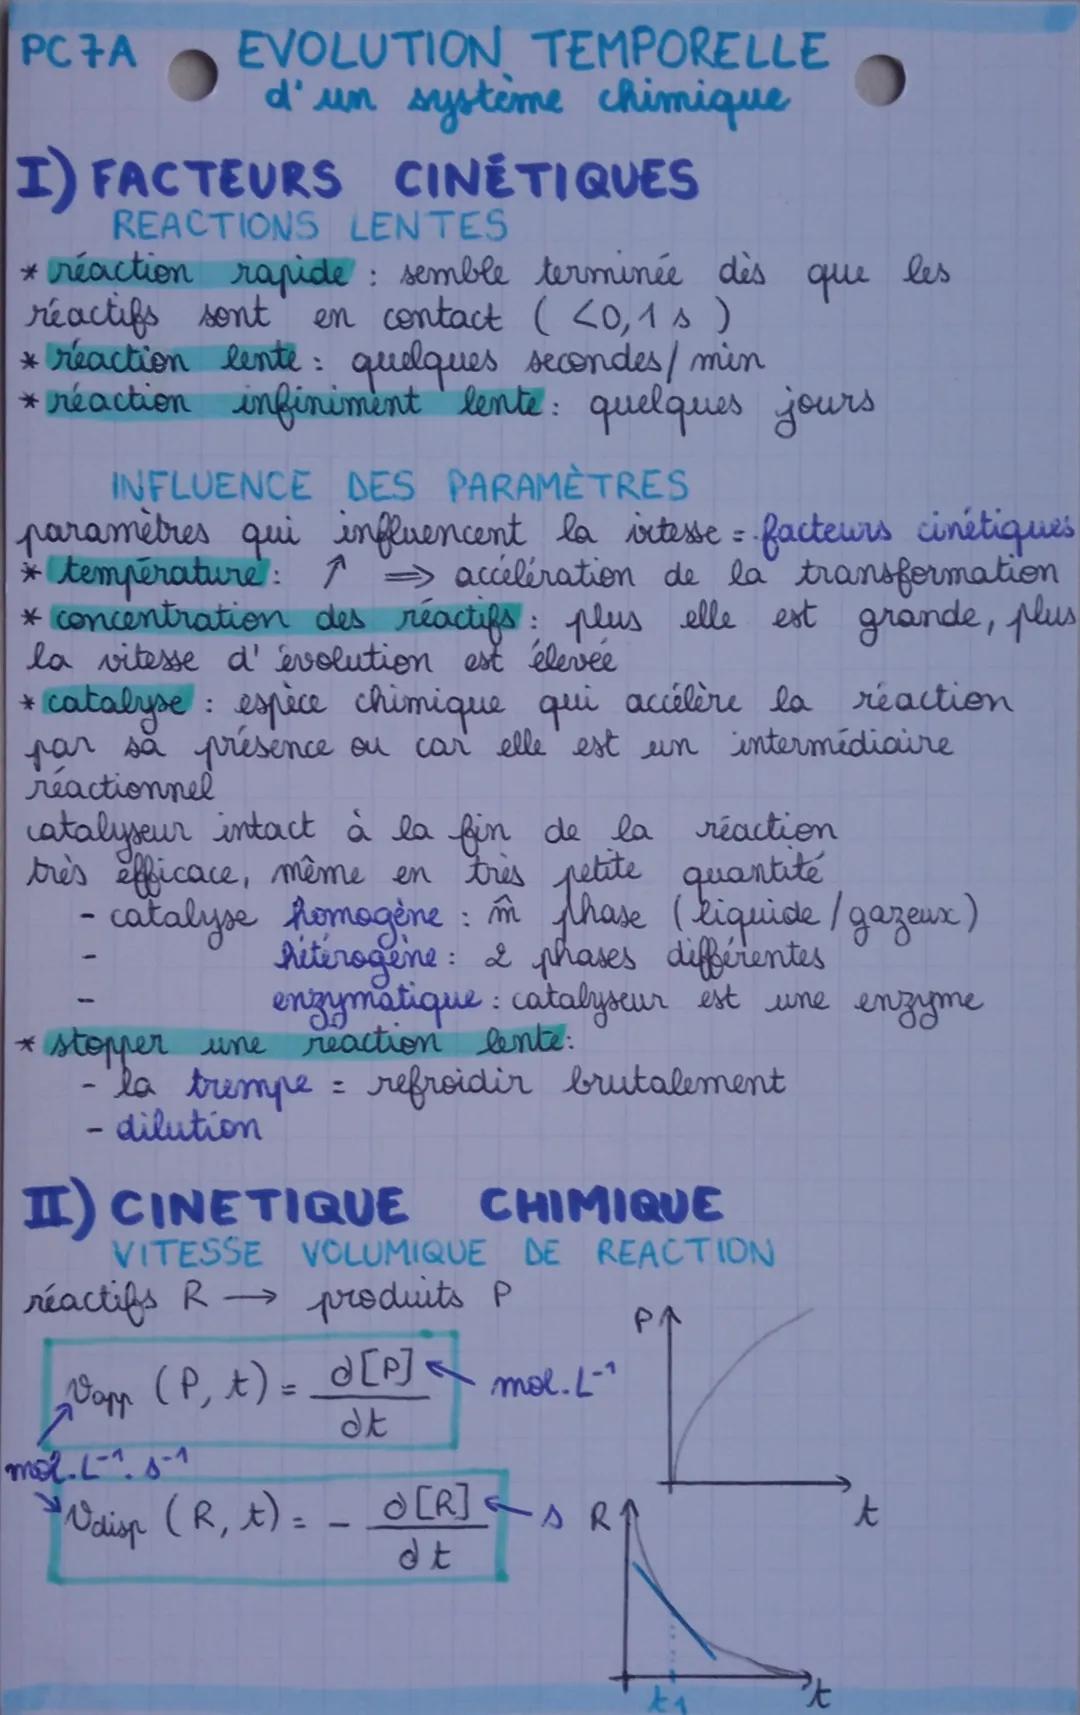 PC7A EVOLUTION TEMPORELLE
d'un système chimique
I) FACTEURS CINÉTIQUES
REACTIONS LENTES
* réaction rapide : semble terminée dès que les
réactifs sont en contact ( <0,1 s )
* réaction lente : quelques secondes/min
* réaction infiniment lente : quelques jours
INFLUENCE DES PARAMÈTRES
paramètres qui influencent la vitesse = facteurs cinétiques
* température : ↑ ⇒ accélération de la transformation
* concentration des réactifs : plus elle est grande, plus
la vitesse d'évolution est élevée
* catalyse : espèce chimique qui accélère la réaction
par sa présence ou car elle est un intermédiaire
réactionnel
catalyseur intact à la fin de la réaction
très efficace, même en très petite quantité
- catalyse homogène : m̂ phase (liquide / gazeux)
- hétérogène : 2 phases différentes
- enzymatique : catalyseur est une enzyme
* stopper une réaction lente :
- la trempe = refroidir brutalement
- dilution
II) CINETIQUE CHIMIQUE
VITESSE VOLUMIQUE DE REACTION
réactifs R → produits P
P
Vapp (P, t) = d[P] / dt mol.L⁻¹
mol.L⁻¹.s⁻¹
t
Vdisp (R, t) = - d[R] / dt s
R
t1 t